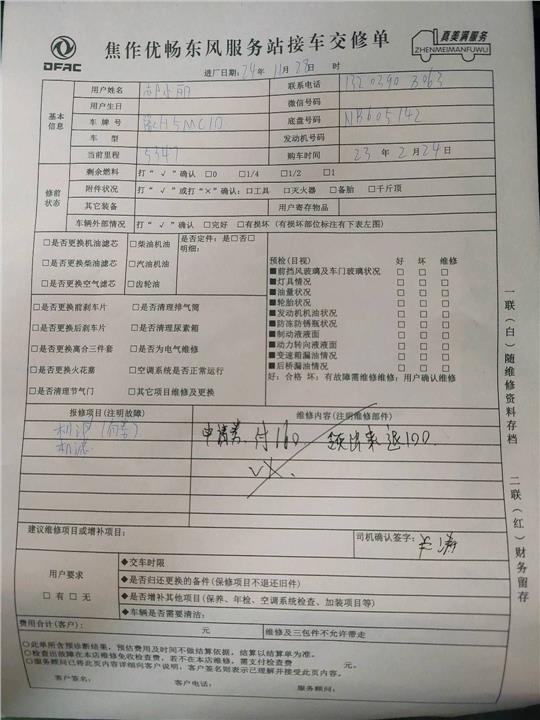 DFAC
焦作优畅东风服务站接车交修单
真美满服务
ZHENMEIMANFUWU
进厂日期：24年 11月 28日 时
基本信息
用户姓名
联系电话
用户生日
微信号码
车牌号
底盘号码 NK605142
车型
发动机号码
当前里程 5347
购车时间 23年 2月 24日
修前状态
剩余燃料 打“√”确认 □0 □1/4 □1/2 □1
附件状况 打“√”或打“×”确认：□工具 □灭火器 □备胎 □千斤顶
其它装备 用户寄存物品
车辆外部情况 打“√”确认 □完好 □有损坏（有损坏部位标注有下表左图）
□是否更换机油滤芯 □柴油机油 是否定件：是□否□
明细：
□是否更换柴油滤芯 □汽油机油
□是否更换空气滤芯 □齿轮油
□是否更换前刹车片 □是否清理排气筒
□是否更换后刹车片 □是否清理尿素箱
□是否更换离合三件套 □是否为电气维修
□是否更换火花塞 □空调系统是否正常运行
□是否清理节气门 □其它项目维修及更换
预检(目视) 好 坏 维修
■前挡风玻璃及车门玻璃状况 □ □ □
■灯具情况 □ □ □
■油量状况 □ □ □
■轮胎状况 □ □ □
■发动机机油状况 □ □ □
■防冻防锈瓶状况 □ □ □
■制动液液面 □ □ □
■动力转向液液面 □ □ □
■变速箱漏油情况 □ □ □
■后桥漏油情况 □ □ □
好：合格 坏：有故障需维修维修：用户确认维修
报修项目(注明故障)
维修内容(注明维修部件)
机滤
付160
退100
建议维修项目或增补项目：
司机确认签字：
用户要求
□有 □无
◆交车时限
◆是否归还更换的备件(保修项目不退还旧件)
◆是否增补其他项目(保养、年检、空调系统检查、加装项目等)
◆车辆是否需要清洁：
费用合计(客户)： 元 维修及三包件不允许带走
○此单所含预诊断结果，预估费用及时间不做结算依据，结算以结算单为准。
○检查出故障在本店维修免收检查费，若不在本店维修，需支付检查费 元。
○服务顾问已将此页内容详细向客户说明，客户签名则表示已理解并接受此页内容。
客户签名： 客户电话： 服务顾问：
一联（白）随维修资料存档
二联（红）财务留存